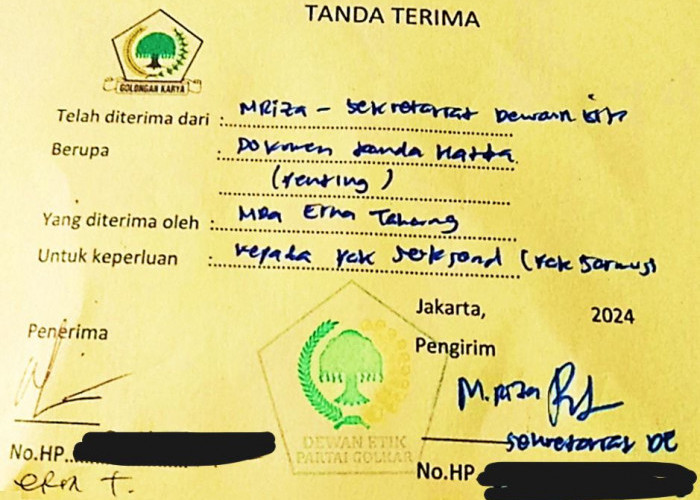 TANDA TERIMA
GOLONGAN KARYA
Telah diterima dari : MRiza - Sekretariat Dewan Etik
Berupa : Dokumen tanda Harta
(Penting)
Yang diterima oleh : Mba Erna
Untuk keperluan : kepada
Jakarta, 2024
Penerima
Pengirim
M. Riza
DEWAN ETIK
PARTAI GOLKAR
Sekretariat DE
No.HP
No.HP
Erna T.